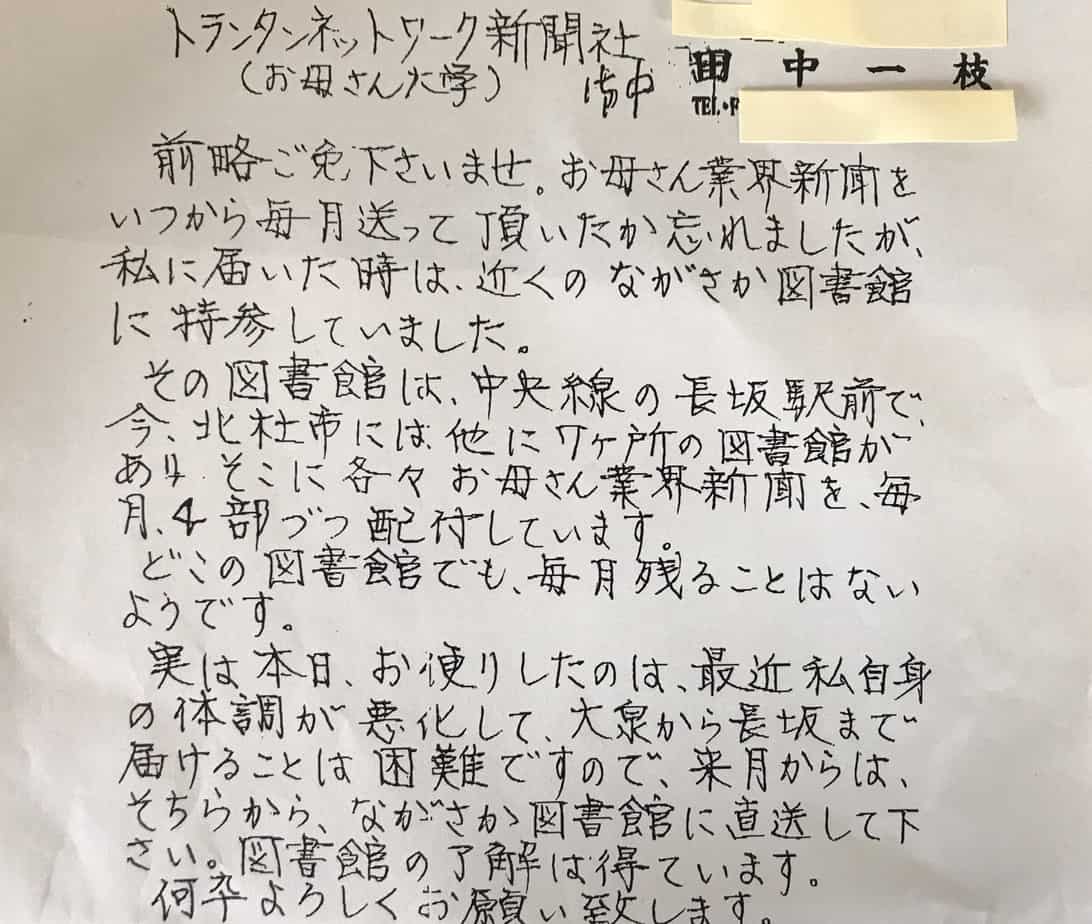 トランタンネットワーク新聞社
(お母さん大学) 御中
田中一枝
TEL・F
前略ご免下さいませ。お母さん業界新聞を
いつから毎月送って頂いたか忘れましたが、
私に届いた時は、近くのながさか図書館
に特参していました。
その図書館は、中央線の長坂駅前で、
今、北杜市には、他に7ヶ所の図書館が
あり、そこに各々お母さん業界新聞を、毎
月、4部づつ配付しています。
どこの図書館でも、毎月残ることはない
ようです。
実は本日、お便りしたのは、最近私自身
の体調が悪化して、大泉から長坂まで
届けることは困難ですので、来月からは、
そちらから、ながさか図書館に直送して下
さい。図書館の了解は得ています。
何卒よろしくお願い致します。